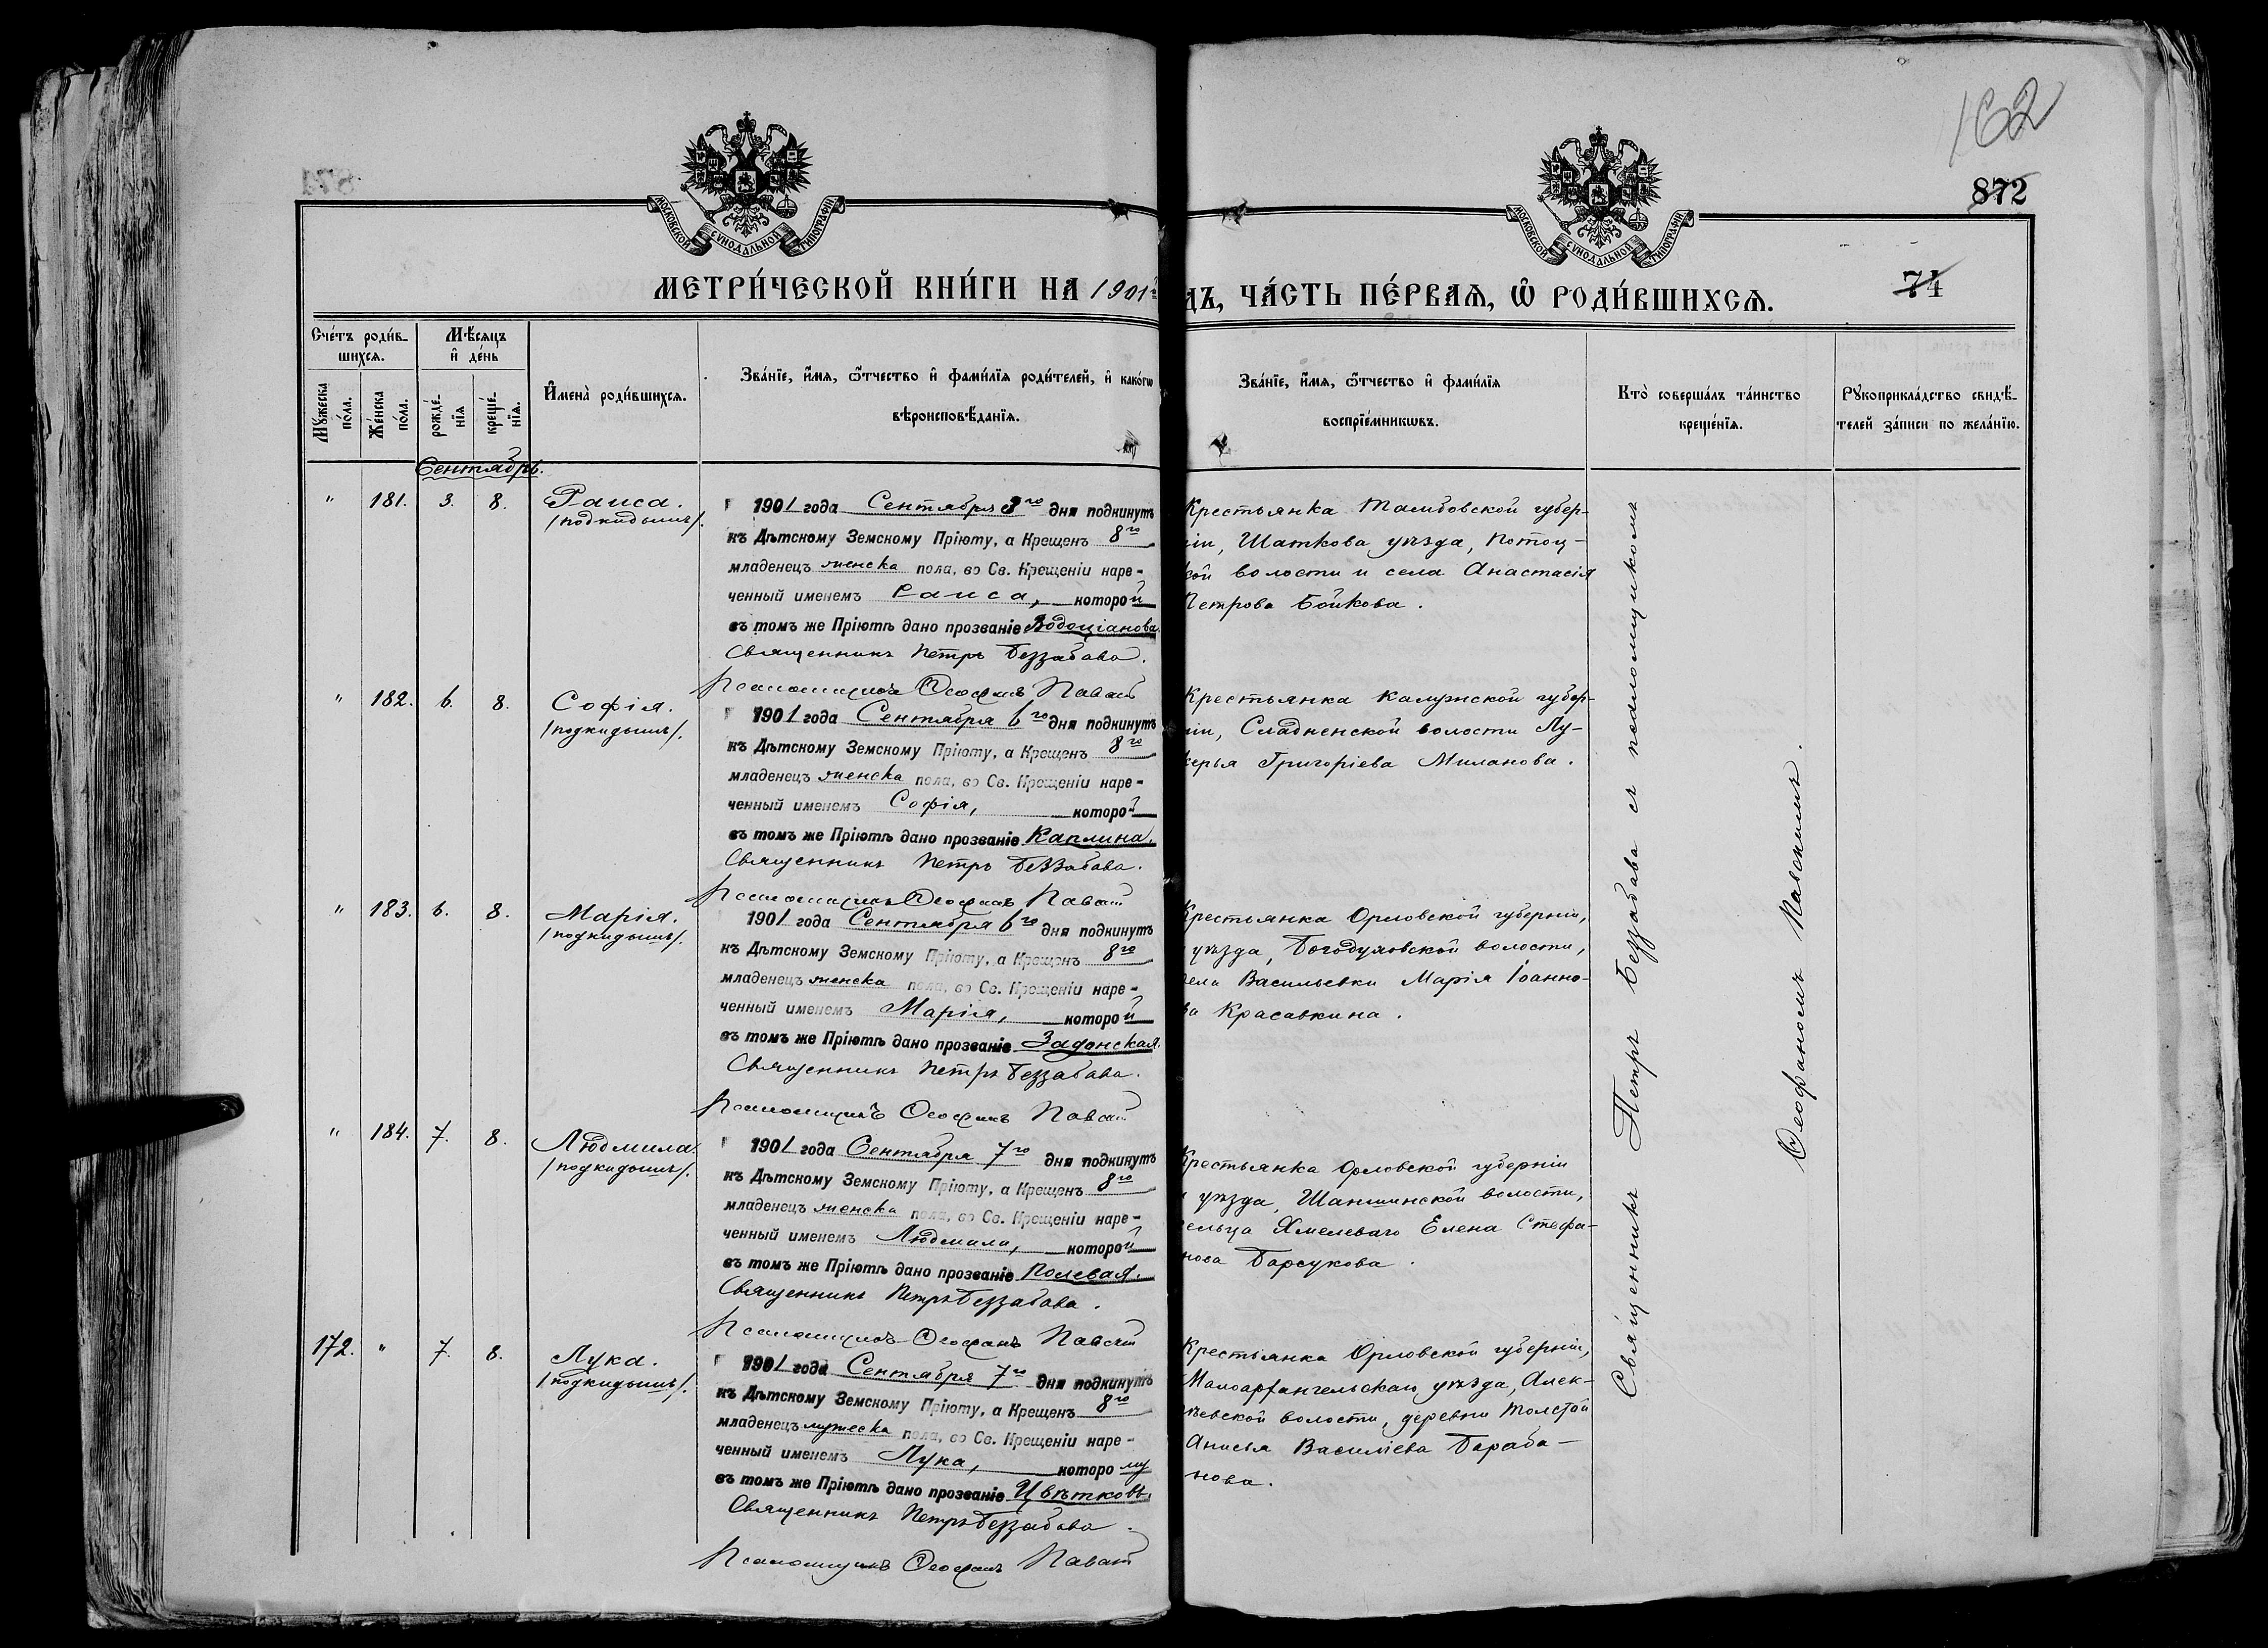 162
872
МОСКОВСКОЙ СѴНОДАЛЬНОЙ ТИПОГРАФІИ
МОСКОВСКОЙ СѴНОДАЛЬНОЙ ТИПОГРАФІИ
74
МЕТРИ́ЧЕСКОЙ КНИ́ГИ НА 1901
ДЪ, ЧА́СТЬ ПЕ́РВАѦ, Ѡ҆ РОДИ́ВШИХСѦ.
Сче́тъ роди́в-
шихсѧ.
Мѣ́сѧцъ
и҆ де́нь
Мꙋ́жеска
по́ла.
Же́нска
по́ла.
рожде́-
нїѧ
креще́-
нїѧ.
И҆мена̀ роди́вшихсѧ.
Зва́нїе, и҆́мѧ, ѻ҆́тчество и҆ фами́лїѧ роди́телей, и҆ како́гѡ
вѣроисповѣ́данїѧ.
Зва́нїе, и҆́мѧ, ѻ҆́тчество и҆ фами́лїѧ
воспрїе́мникѡвъ.
Кто̀ соверша́лъ та́инство
креще́нїѧ.
Рꙋкоприкла́дство свидѣ́-
телей за́писи по жела́нїю.
Сентябрь.
" 181. 3. 8. Раиса.
/подкидышъ/.
1901 года Сентября 3го дня подкинутъ
къ Дѣтскому Земскому Пріюту, а Крещенъ 8го
младенецъ женска пола, во Св. Крещеніи наре-
ченный именемъ Раиса, которой
въ томъ же Пріютѣ дано прозваніе
Священникъ Петръ Беззабава.
Псаломщикъ Ѳеофанъ
Крестьянка Тамбовской губер-
ніи, Шатkова уѣзда,
кой волости и села Анастасія
Петрова Бойкова.
" 182. 6. 8. Софія.
/подкидышъ/.
1901 года Сентября 6го дня подкинутъ
къ Дѣтскому Земскому Пріюту, а Крещенъ 8го
младенецъ женска пола, во Св. Крещеніи наре-
ченный именемъ Софія, которой
въ томъ же Пріютѣ дано прозваніе Каплина.
Священникъ Петръ Беззабава.
Псаломщикъ Ѳеофанъ
Крестьянка Калужской губер-
ніи, Сладненской волости Лу-
керья Григоріева Миланова.
" 183. 6. 8. Марія.
/подкидышъ/.
1901 года Сентября 6го дня подкинутъ
къ Дѣтскому Земскому Пріюту, а Крещенъ 8го
младенецъ женска пола, во Св. Крещеніи наре-
ченный именемъ Марія, которой
въ томъ же Пріютѣ дано прозваніе Задонская.
Священникъ Петръ Беззабава.
Псаломщикъ Ѳеофанъ
Крестьянка Орловской губерніи,
уѣзда, Богодуховской волости,
села Васильевки Марія Іоанно-
ва Красавкина.
" 184. 7. 8. Людмила.
/подкидышъ/.
1901 года Сентября 7го дня подкинутъ
къ Дѣтскому Земскому Пріюту, а Крещенъ 8го
младенецъ женска пола, во Св. Крещеніи наре-
ченный именемъ Людмила, которой
въ томъ же Пріютѣ дано прозваніе Полевая.
Священникъ Петръ Беззабава.
Псаломщикъ Ѳеофанъ
Крестьянка Орловской губерніи
уѣзда, волости,
сельца Хмелеваго Елена Стефа-
нова Барсукова.
172. " 7. 8. Лука.
/подкидышъ/.
1901 года Сентября 7го дня подкинутъ
къ Дѣтскому Земскому Пріюту, а Крещенъ 8го
младенецъ мужеска пола, во Св. Крещеніи наре-
ченный именемъ Лука, которому
въ томъ же Пріютѣ дано прозваніе Цвѣтковъ.
Священникъ Петръ Беззабава.
Псаломщикъ Ѳеофанъ
Крестьянка Орловской губерніи,
Малоархангельскаго уѣзда, Алек-
сѣевской волости, деревни Толстой
Анисья Василіева Бараба-
нова.
Священникъ Петръ Беззабава съ псаломщикомъ
Ѳеофаномъ Павскимъ.